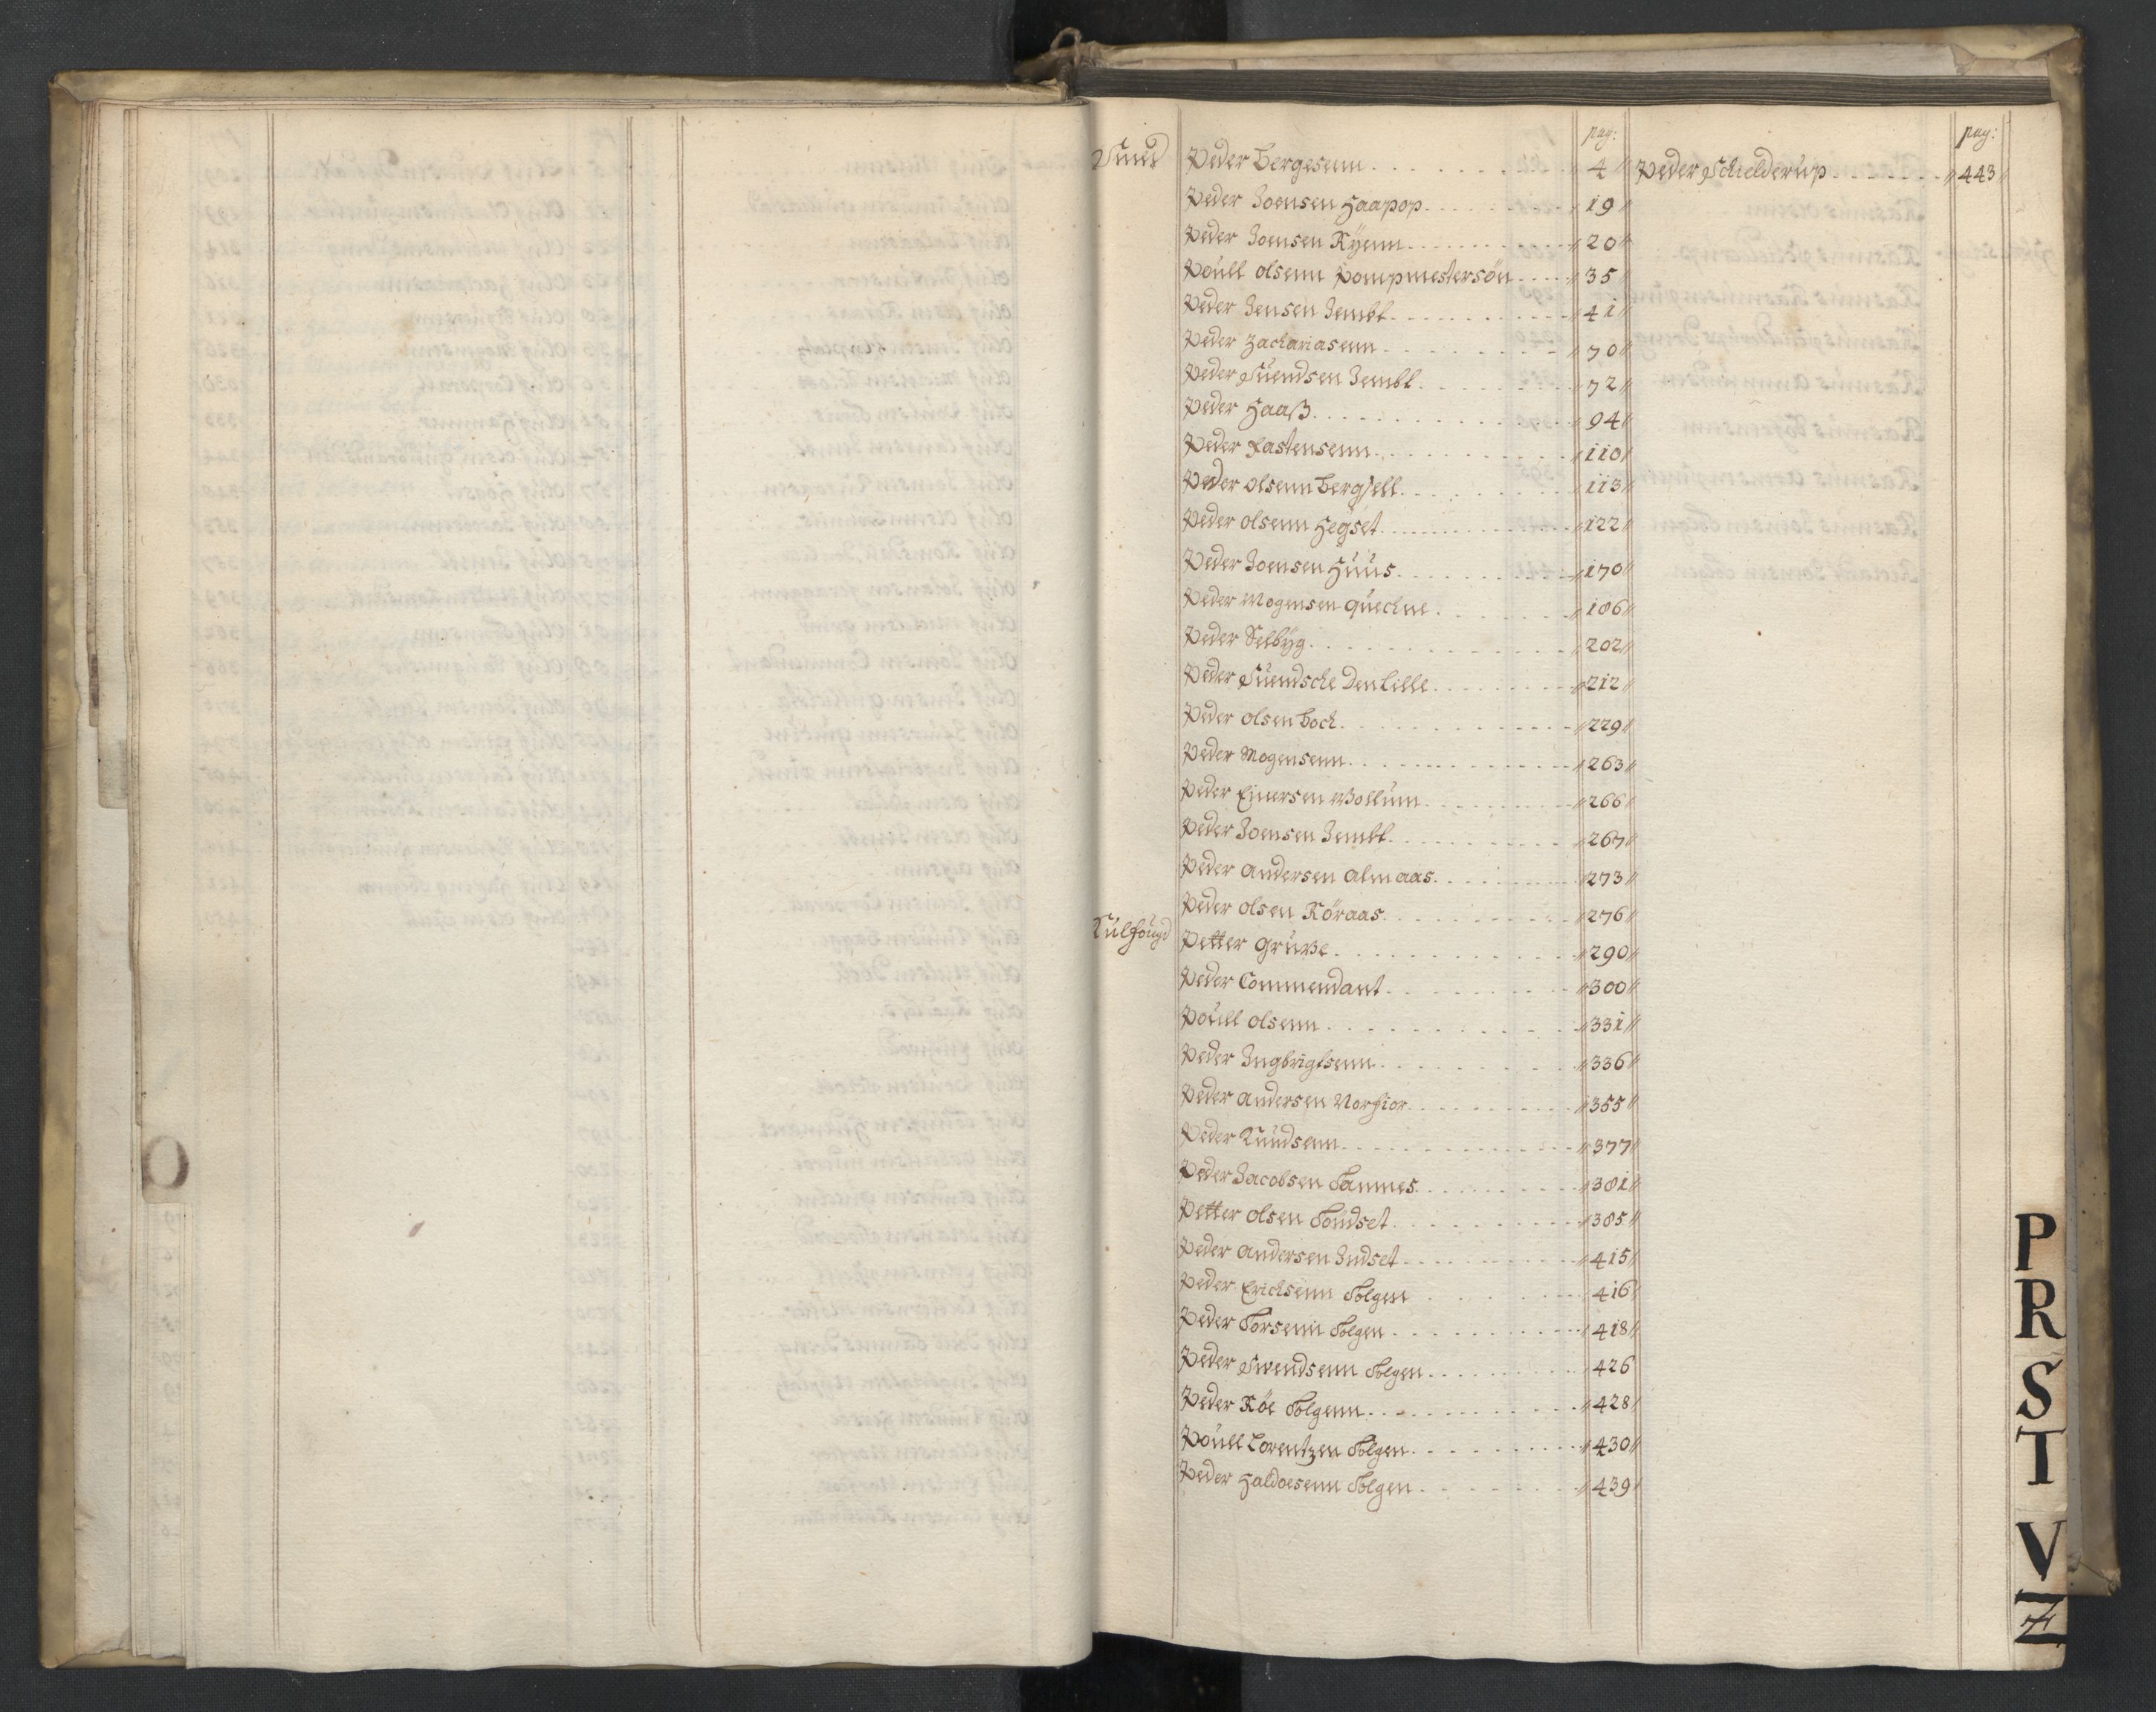 pag: pag:
Smed Peder Bergesenn 4 Peder Schielderup 443
Peder Joensen Haapop 19
Peder Joensen Rÿenn 20
Poull olsenn Pompmestersön 35
Peder Jensen Jembt 41
Peder Zachariasenn 70
Peder Suendsen Jembt 72
Peder Haaß 94
Peder Kastensenn 110
Peder olsenn Bergsell 113
Peder olsenn Hegset 122
Peder Joensen Huus 170
Peder Mogensen Quechne 186
Peder Selbÿg 202
Peder Suendsche Den Lille 212
Peder olsen Bock 229
Peder Mogensenn 263
Peder Einersen Wollum 266
Peder Joensen Jembt 267
Peder Andersen Almaas 273
Peder olsen Röraas 276
Kulfougd Petter Gruße 290
Peder Commendant 300
Poull olsenn 331
Peder Ingbrigtsenn 336
Peder Andersen Norfior 355
Peder Knudsenn 377
Peder Jacobsen Tamnes 381
Petter olsen Tondset 385
Peder Andersen Indset 415
Peder Ericksenn Tolgen 416
Peder Torsenn Tolgen 418
Peder Swendsenn Tolgen 426
Peder Röe Tolgenn 428
Poull Lorentzen Tolgen 430
Peder Haldoesenn Tolgen 439
O
P
R
S
T
V
Z